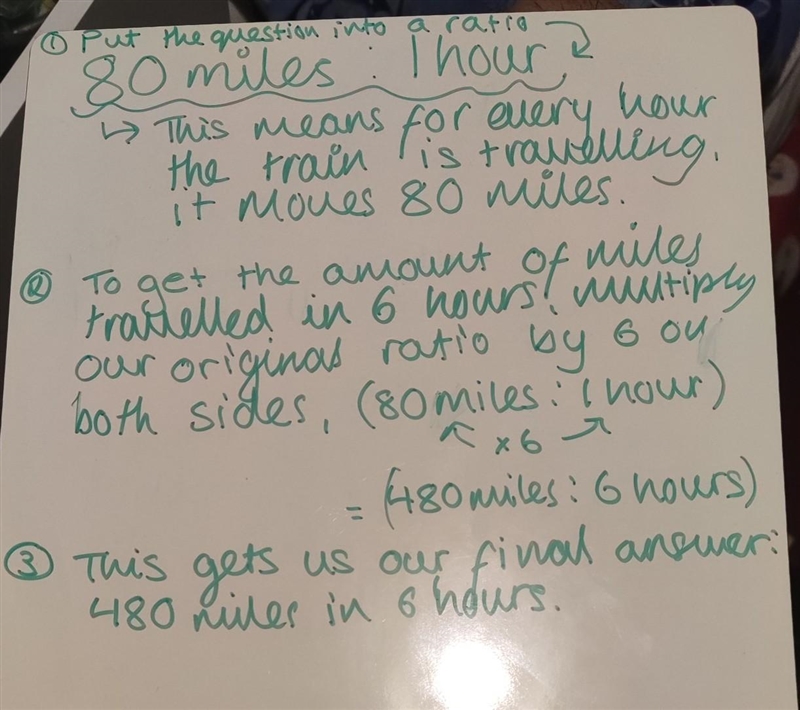 ① Put the question into a ratio
80 miles : 1 hour
↳ This means for every hour
the train is travelling,
it moves 80 miles.
② To get the amount of miles
travelled in 6 hours, multiply
our original ratio by 6 on
both sides, (80 miles : 1 hour)
x6
= (480 miles : 6 hours)
③ This gets us our final answer:
480 miles in 6 hours.